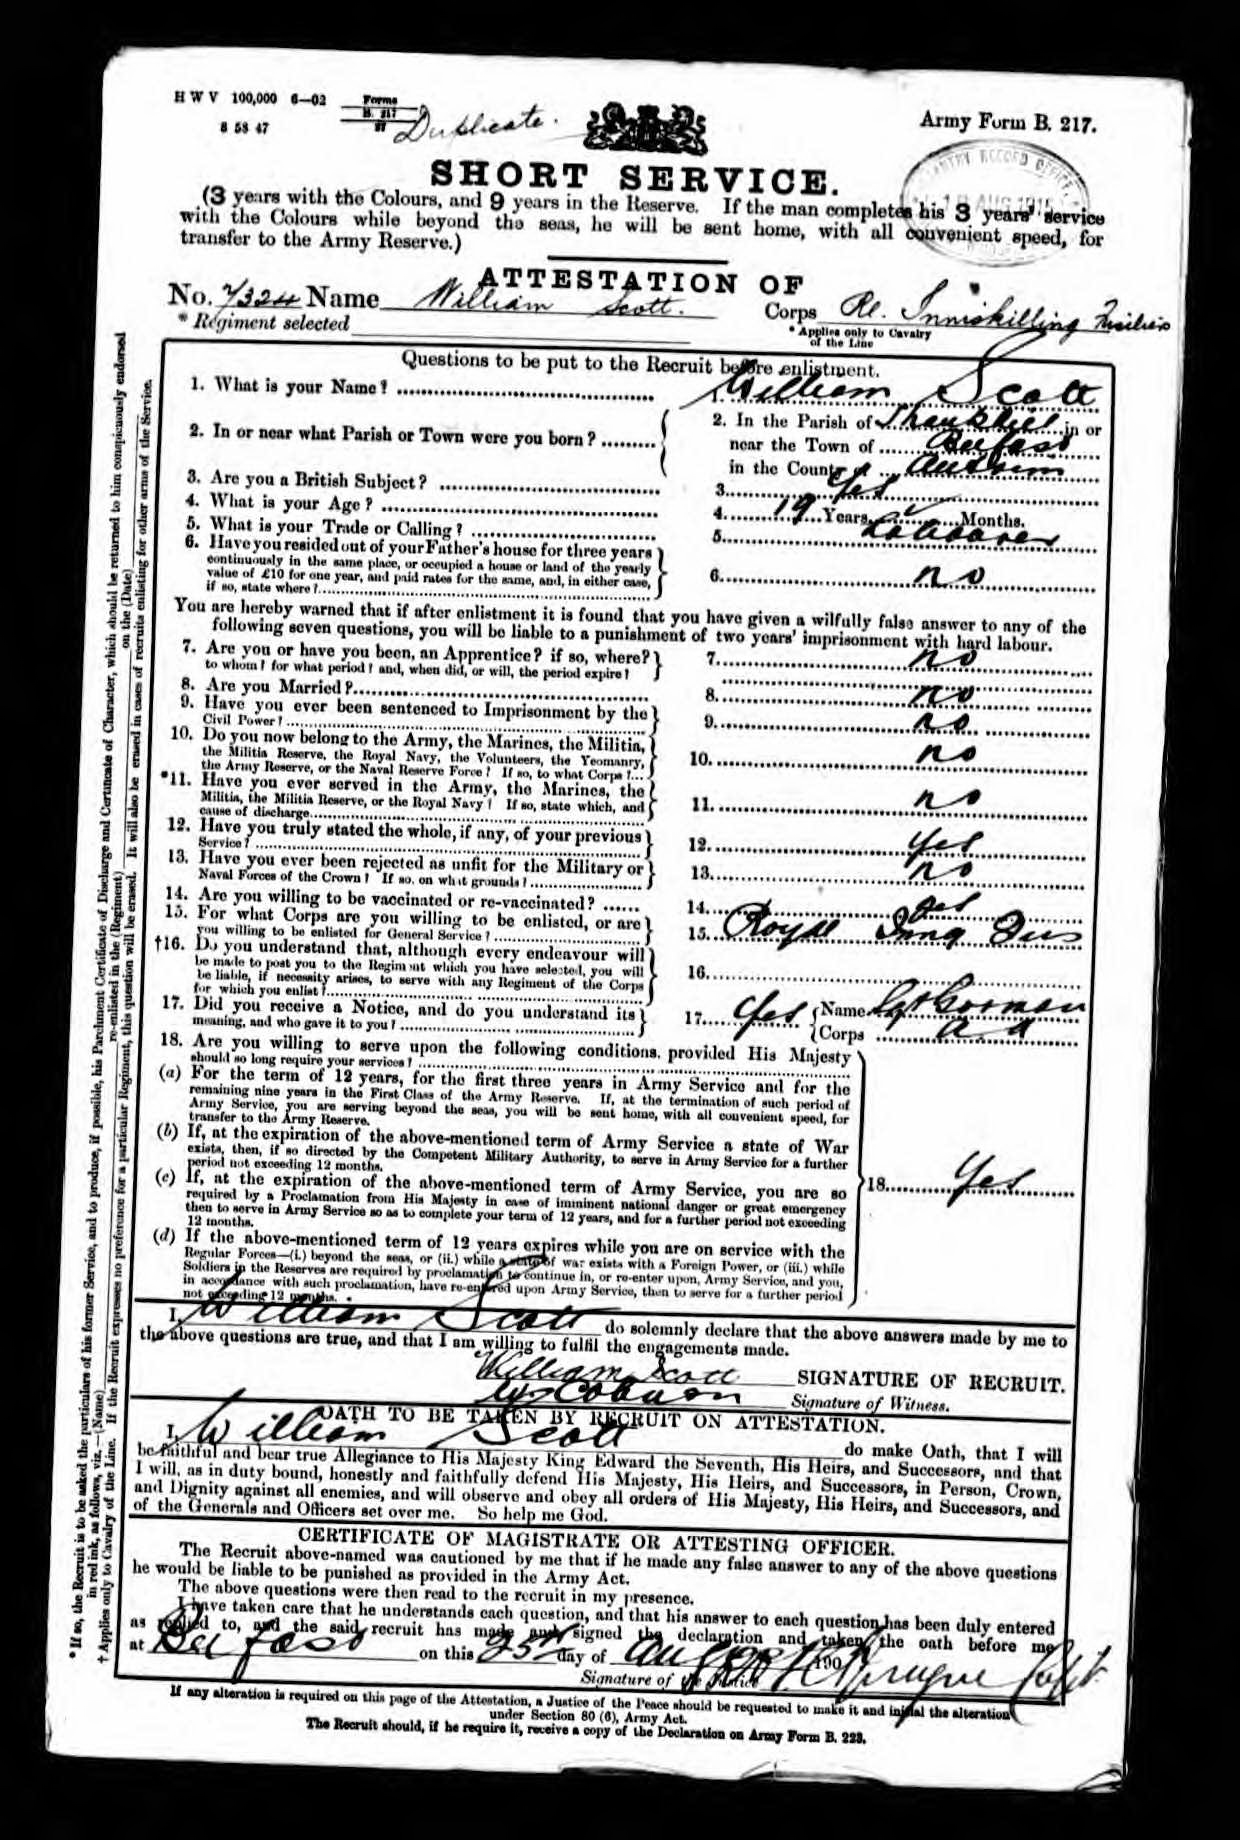 H W V 100,000 6—02
Forms
B. 217
8 58 47
Duplicate.
Army Form B. 217.
SHORT SERVICE.
(3 years with the Colours, and 9 years in the Reserve. If the man completes his 3 years' service
with the Colours while beyond the seas, he will be sent home, with all convenient speed, for
transfer to the Army Reserve.)
ATTESTATION OF
No. 7324 Name William Scott. Corps Rl. Inniskilling Fusiliers
* Regiment selected
* Applies only to Cavalry
of the Line
Questions to be put to the Recruit before enlistment.
1. What is your Name? 1. William Scott
2. In or near what Parish or Town were you born? 2. In the Parish of Shankhill in or
near the Town of Belfast
in the County of Antrim
3. Are you a British Subject? 3. Yes
4. What is your Age? 4. 19 Years Months.
5. What is your Trade or Calling? 5. Labourer
6. Have you resided out of your Father's house for three years
continuously in the same place, or occupied a house or land of the yearly
value of £10 for one year, and paid rates for the same, and, in either case,
if so, state where? 6. no
You are hereby warned that if after enlistment it is found that you have given a wilfully false answer to any of the
following seven questions, you will be liable to a punishment of two years' imprisonment with hard labour.
7. Are you or have you been, an Apprentice? if so, where?
to whom? for what period? and, when did, or will, the period expire? 7. no
8. Are you Married? 8. no
9. Have you ever been sentenced to Imprisonment by the
Civil Power? 9. no
10. Do you now belong to the Army, the Marines, the Militia,
the Militia Reserve, the Royal Navy, the Volunteers, the Yeomanry,
the Army Reserve, or the Naval Reserve Force? If so, to what Corps? 10. no
*11. Have you ever served in the Army, the Marines, the
Militia, the Militia Reserve, or the Royal Navy? If so, state which, and
cause of discharge 11. no
12. Have you truly stated the whole, if any, of your previous
Service? 12. Yes
13. Have you ever been rejected as unfit for the Military or
Naval Forces of the Crown? If so, on what grounds? 13. no
14. Are you willing to be vaccinated or re-vaccinated? 14. Yes
15. For what Corps are you willing to be enlisted, or are
you willing to be enlisted for General Service? 15. Royal Innq Fus
†16. Do you understand that, although every endeavour will
be made to post you to the Regiment which you have selected, you will
be liable, if necessity arises, to serve with any Regiment of the Corps
for which you enlist? 16.
17. Did you receive a Notice, and do you understand its
meaning, and who gave it to you? 17. Yes Name Gorman
Corps
18. Are you willing to serve upon the following conditions, provided His Majesty
should so long require your services?
(a) For the term of 12 years, for the first three years in Army Service and for the
remaining nine years in the First Class of the Army Reserve. If, at the termination of such period of
Army Service, you are serving beyond the seas, you will be sent home, with all convenient speed, for
transfer to the Army Reserve.
(b) If, at the expiration of the above-mentioned term of Army Service a state of War
exists, then, if so directed by the Competent Military Authority, to serve in Army Service for a further
period not exceeding 12 months.
(c) If, at the expiration of the above-mentioned term of Army Service, you are so
required by a Proclamation from His Majesty in case of imminent national danger or great emergency
then to serve in Army Service so as to complete your term of 12 years, and for a further period not exceeding
12 months.
18. Yes
(d) If the above-mentioned term of 12 years expires while you are on service with the
Regular Forces—(i.) beyond the seas, or (ii.) while a state of war exists with a Foreign Power, or (iii.) while
Soldiers in the Reserves are required by proclamation to continue in, or re-enter upon, Army Service, and you,
in accordance with such proclamation, have re-entered upon Army Service, then to serve for a further period
not exceeding 12 months.
I, William Scott do solemnly declare that the above answers made by me to
the above questions are true, and that I am willing to fulfil the engagements made.
William Scott SIGNATURE OF RECRUIT.
Signature of Witness.
OATH TO BE TAKEN BY RECRUIT ON ATTESTATION.
I, William Scott do make Oath, that I will
be faithful and bear true Allegiance to His Majesty King Edward the Seventh, His Heirs, and Successors, and that
I will, as in duty bound, honestly and faithfully defend His Majesty, His Heirs, and Successors, in Person, Crown,
and Dignity against all enemies, and will observe and obey all orders of His Majesty, His Heirs, and Successors, and
of the Generals and Officers set over me. So help me God.
CERTIFICATE OF MAGISTRATE OR ATTESTING OFFICER.
The Recruit above-named was cautioned by me that if he made any false answer to any of the above questions
he would be liable to be punished as provided in the Army Act.
The above questions were then read to the recruit in my presence.
I have taken care that he understands each question, and that his answer to each question has been duly entered
as replied to, and the said recruit has made and signed the declaration and taken the oath before me
at Belfast on this 25th day of 190
Signature of the Justice
If any alteration is required on this page of the Attestation, a Justice of the Peace should be requested to make it and initial the alteration
under Section 80 (6), Army Act.
The Recruit should, if he require it, receive a copy of the Declaration on Army Form B. 223.
* If so, the Recruit is to be asked the particulars of his former Service, and to produce, if possible, his Parchment Certificate of Discharge and Certificate of Character, which should be returned to him conspicuously endorsed
in red ink, as follows, viz.—(Name) re-enlisted in the (Regiment) on the (Date)
† Applies only to Cavalry of the Line. If the Recruit expresses no preference for a particular Regiment, this question will be erased. It will also be erased in cases of recruits enlisting for other arms of the Service.